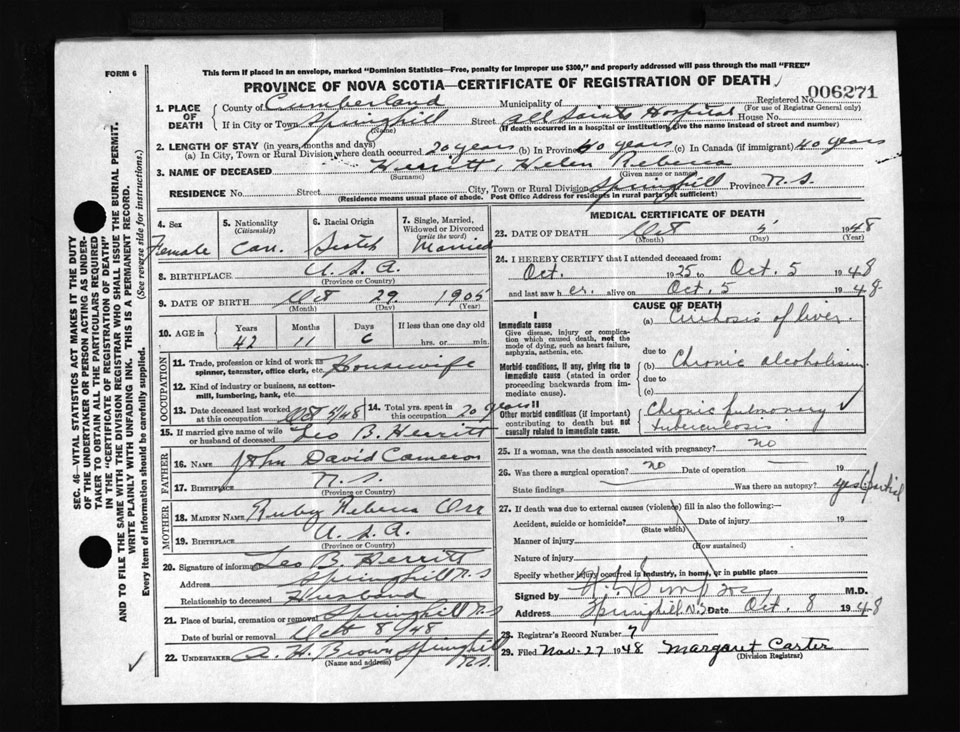 This form if placed in an envelope, marked "Dominion Statistics—Free, penalty for improper use $300," and properly addressed will pass through the mail "FREE"
FORM 6
PROVINCE OF NOVA SCOTIA—CERTIFICATE OF REGISTRATION OF DEATH
006271
Registered No.
(For use of Registrar General only)
1. PLACE OF DEATH
County of Cumberland Municipality of
If in City or Town Springhill Street All Saints Hospital House No.
(Name) (If death occurred in a hospital or institution, give the name instead of street and number)
2. LENGTH OF STAY (in years, months and days)
(a) In City, Town or Rural Division where death occurred 20 years (b) In Province 40 years (c) In Canada (if immigrant) 40 years
3. NAME OF DECEASED Herritt, Helen Rebecca
(Surname) (Given name or names)
RESIDENCE No. Street City, Town or Rural Division Springhill Province N.S.
(Residence means usual place of abode. Post Office Address for residents in rural parts not sufficient)
4. Sex Female
5. Nationality (Citizenship) Can.
6. Racial Origin Scotch
7. Single, Married, Widowed or Divorced (write the word) Married
8. BIRTHPLACE U.S.A.
(Province or Country)
9. DATE OF BIRTH Oct 29 1905
(Month) (Day) (Year)
10. AGE in Years 42 Months 11 Days 6 If less than one day old hrs. or min.
OCCUPATION
11. Trade, profession or kind of work as spinner, teamster, office clerk, etc. Housewife
12. Kind of industry or business, as cotton-mill, lumbering, bank, etc.
13. Date deceased last worked at this occupation Oct 5/48
14. Total yrs. spent in this occupation 20 years
15. If married give name of wife or husband of deceased Leo B. Herritt
FATHER
16. NAME John David Cameron
17. BIRTHPLACE N.S.
MOTHER
18. MAIDEN NAME Ruby Rebecca Orr
19. BIRTHPLACE U.S.A.
(Province or Country)
20. Signature of informant Leo B. Herritt
Address Springhill N.S
Relationship to deceased Husband
21. Place of burial, cremation or removal Springhill N.S
Date of burial or removal Oct 8/48
22. UNDERTAKER A. H. Brown Springhill N.S.
(Name and address)
MEDICAL CERTIFICATE OF DEATH
23. DATE OF DEATH Oct 5 1948
(Month) (Day) (Year)
24. I HEREBY CERTIFY that I attended deceased from:
Oct. 1925 to Oct. 5 1948
and last saw her alive on Oct. 5 1948
CAUSE OF DEATH
I
Immediate cause
Give disease, injury or complication which caused death, not the mode of dying, such as heart failure, asphyxia, asthenia, etc.
(a) Cirrhosis of liver.
due to
Morbid conditions, if any, giving rise to immediate cause (stated in order proceeding backwards from immediate cause).
(b) Chronic alcoholism
due to
(c)
II
Other morbid conditions (if important) contributing to death but not causally related to immediate cause.
Chronic pulmonary tuberculosis
25. If a woman, was the death associated with pregnancy? no
26. Was there a surgical operation? no Date of operation 19
State findings Was there an autopsy? yes (partial
27. If death was due to external causes (violence) fill in also the following:—
Accident, suicide or homicide? Date of injury 19
(State which)
Manner of injury
(How sustained)
Nature of injury
Specify whether injury occurred in industry, in home, or in public place
Signed by M.D.
Address Springhill, N.S Date Oct. 8 1948
28. Registrar's Record Number 7
29. Filed Nov. 27 1948 Margaret Carter
(Division Registrar)
SEC. 46—VITAL STATISTICS ACT MAKES IT THE DUTY
OF THE UNDERTAKER OR PERSON ACTING AS UNDER-
TAKER TO OBTAIN ALL THE PARTICULARS REQUIRED
IN THE "CERTIFICATE OF REGISTRATION OF DEATH"
AND TO FILE THE SAME WITH THE DIVISION REGISTRAR WHO SHALL ISSUE THE BURIAL PERMIT.
WRITE PLAINLY WITH UNFADING INK. THIS IS A PERMANENT RECORD.
Every item of information should be carefully supplied. (See reverse side for instructions.)